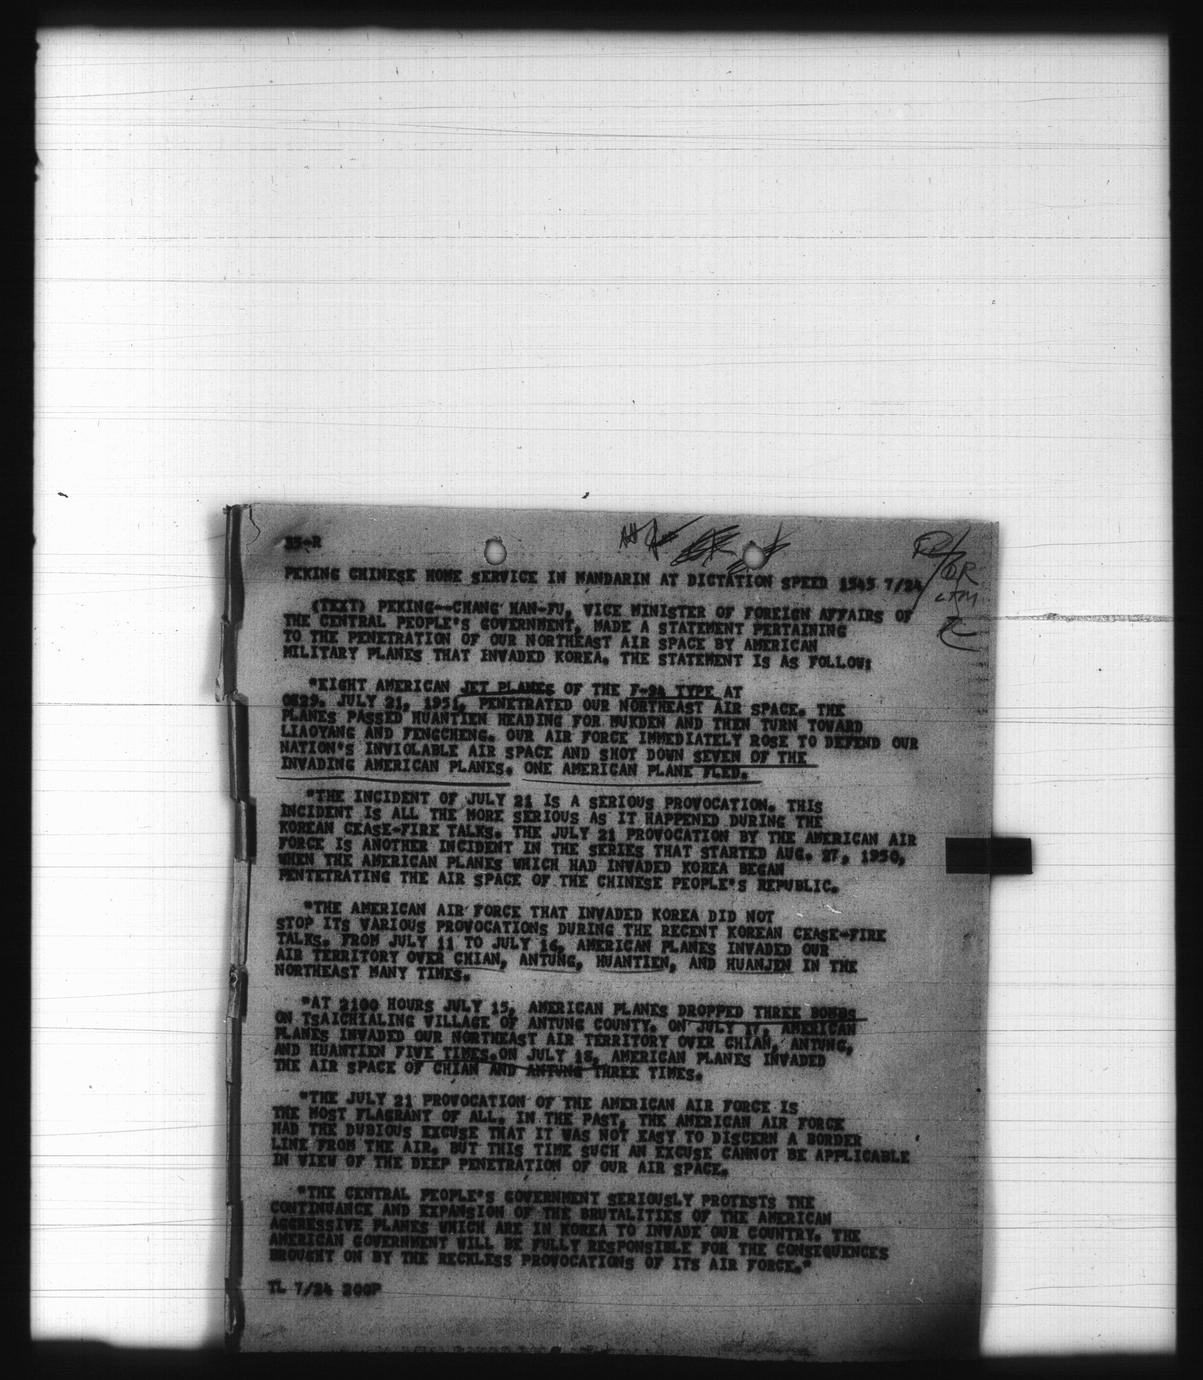 35-R
PEKING CHINESE HOME SERVICE IN MANDARIN AT DICTATION SPEED 1545 7/24
(TEXT) PEKING--CHANG HAN-FU, VICE MINISTER OF FOREIGN AFFAIRS OF
THE CENTRAL PEOPLE'S GOVERNMENT, MADE A STATEMENT PERTAINING
TO THE PENETRATION OF OUR NORTHEAST AIR SPACE BY AMERICAN
MILITARY PLANES THAT INVADED KOREA. THE STATEMENT IS AS FOLLOW:
"EIGHT AMERICAN JET PLANES OF THE TYPE AT
JULY 21, 1951, PENETRATED OUR NORTHEAST AIR SPACE. THE
PLANES PASSED HUANTIEN HEADING FOR MUKDEN AND THEN TURN TOWARD
LIAOYANG AND FENGCHENG. OUR AIR FORCE IMMEDIATELY ROSE TO DEFEND OUR
NATION'S INVIOLABLE AIR SPACE AND SHOT DOWN SEVEN OF THE
INVADING AMERICAN PLANES. ONE AMERICAN PLANE FLED.
"THE INCIDENT OF JULY 21 IS A SERIOUS PROVOCATION. THIS
INCIDENT IS ALL THE MORE SERIOUS AS IT HAPPENED DURING THE
KOREAN CEASE-FIRE TALKS. THE JULY 21 PROVOCATION BY THE AMERICAN AIR
FORCE IS ANOTHER INCIDENT IN THE SERIES THAT STARTED AUG. 27, 1950,
WHEN THE AMERICAN PLANES WHICH HAD INVADED KOREA BEGAN
PENTETRATING THE AIR SPACE OF THE CHINESE PEOPLE'S REPUBLIC.
"THE AMERICAN AIR FORCE THAT INVADED KOREA DID NOT
STOP ITS VARIOUS PROVOCATIONS DURING THE RECENT KOREAN CEASE-FIRE
TALKS. FROM JULY 11 TO JULY 16, AMERICAN PLANES INVADED OUR
AIR TERRITORY OVER CHIAN, ANTUNG, HUANTIEN, AND HUANJEN IN THE
NORTHEAST MANY TIMES.
"AT 2100 HOURS JULY 15, AMERICAN PLANES DROPPED THREE BOMBS
ON TSAICHIALING VILLAGE OF ANTUNG COUNTY. ON JULY 17, AMERICAN
PLANES INVADED OUR NORTHEAST AIR TERRITORY OVER CHIAN, ANTUNG,
AND HUANTIEN FIVE TIMES.ON JULY 18, AMERICAN PLANES INVADED
THE AIR SPACE OF CHIAN AND ANTUNG THREE TIMES.
"THE JULY 21 PROVOCATION OF THE AMERICAN AIR FORCE IS
THE MOST FLAGRANT OF ALL. IN THE PAST, THE AMERICAN AIR FORCE
HAD THE DUBIOUS EXCUSE THAT IT WAS NOT EASY TO DISCERN A BORDER
LINE FROM THE AIR. BUT THIS TIME SUCH AN EXCUSE CANNOT BE APPLICABLE
IN VIEW OF THE DEEP PENETRATION OF OUR AIR SPACE.
"THE CENTRAL PEOPLE'S GOVERNMENT SERIOUSLY PROTESTS THE
CONTINUANCE AND EXPANSION OF THE BRUTALITIES OF THE AMERICAN
AGGRESSIVE PLANES WHICH ARE IN KOREA TO INVADE OUR COUNTRY. THE
AMERICAN GOVERNMENT WILL BE FULLY RESPONSIBLE FOR THE CONSEQUENCES
BROUGHT ON BY THE RECKLESS PROVOCATIONS OF ITS AIR FORCE."
TL 7/24 200P